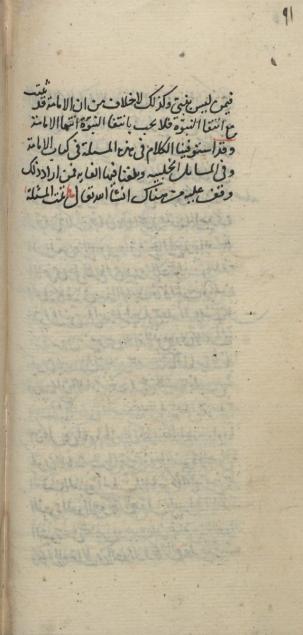 ٩١
فيمن ليس بنبي وكذلك لاخلاف من ان الامامة قد ثبتت
مع انتفا النبوة فلا يجب بانتفا النبوة انتفا الامامة
وقد استوفينا الكلام في هذه المسئلة في كتاب الامامة
وفي المسايل الحلبية وبلغنا فيها الغاية فمن اراد ذلك
وقف عليه من هناك انشا الله تعالى تمت المسئلة